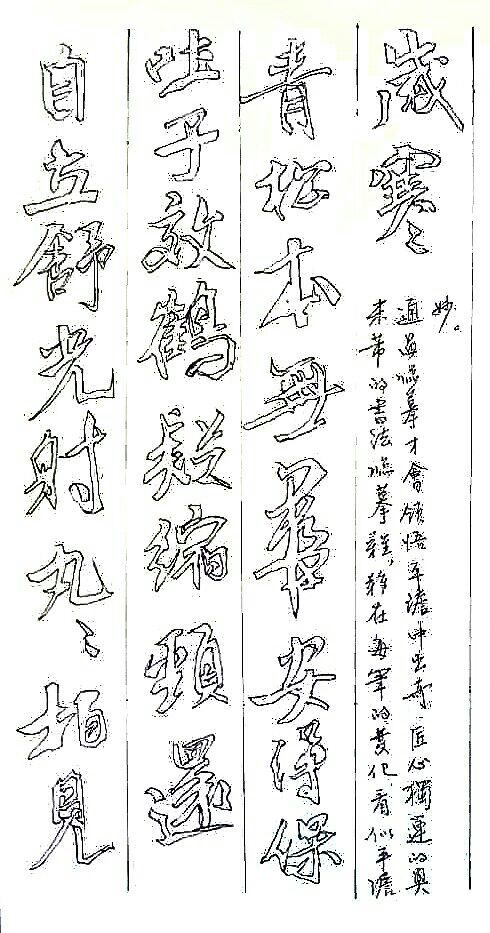 自立舒光射丸〻栢見
吐子效鶴疑縮頸還
青松本無華安得保
歲寒
米芾的書法臨摹難,難在每筆的變化看似平澹
通過臨摹才會領悟平澹中出奇匠心獨運的奧
妙。